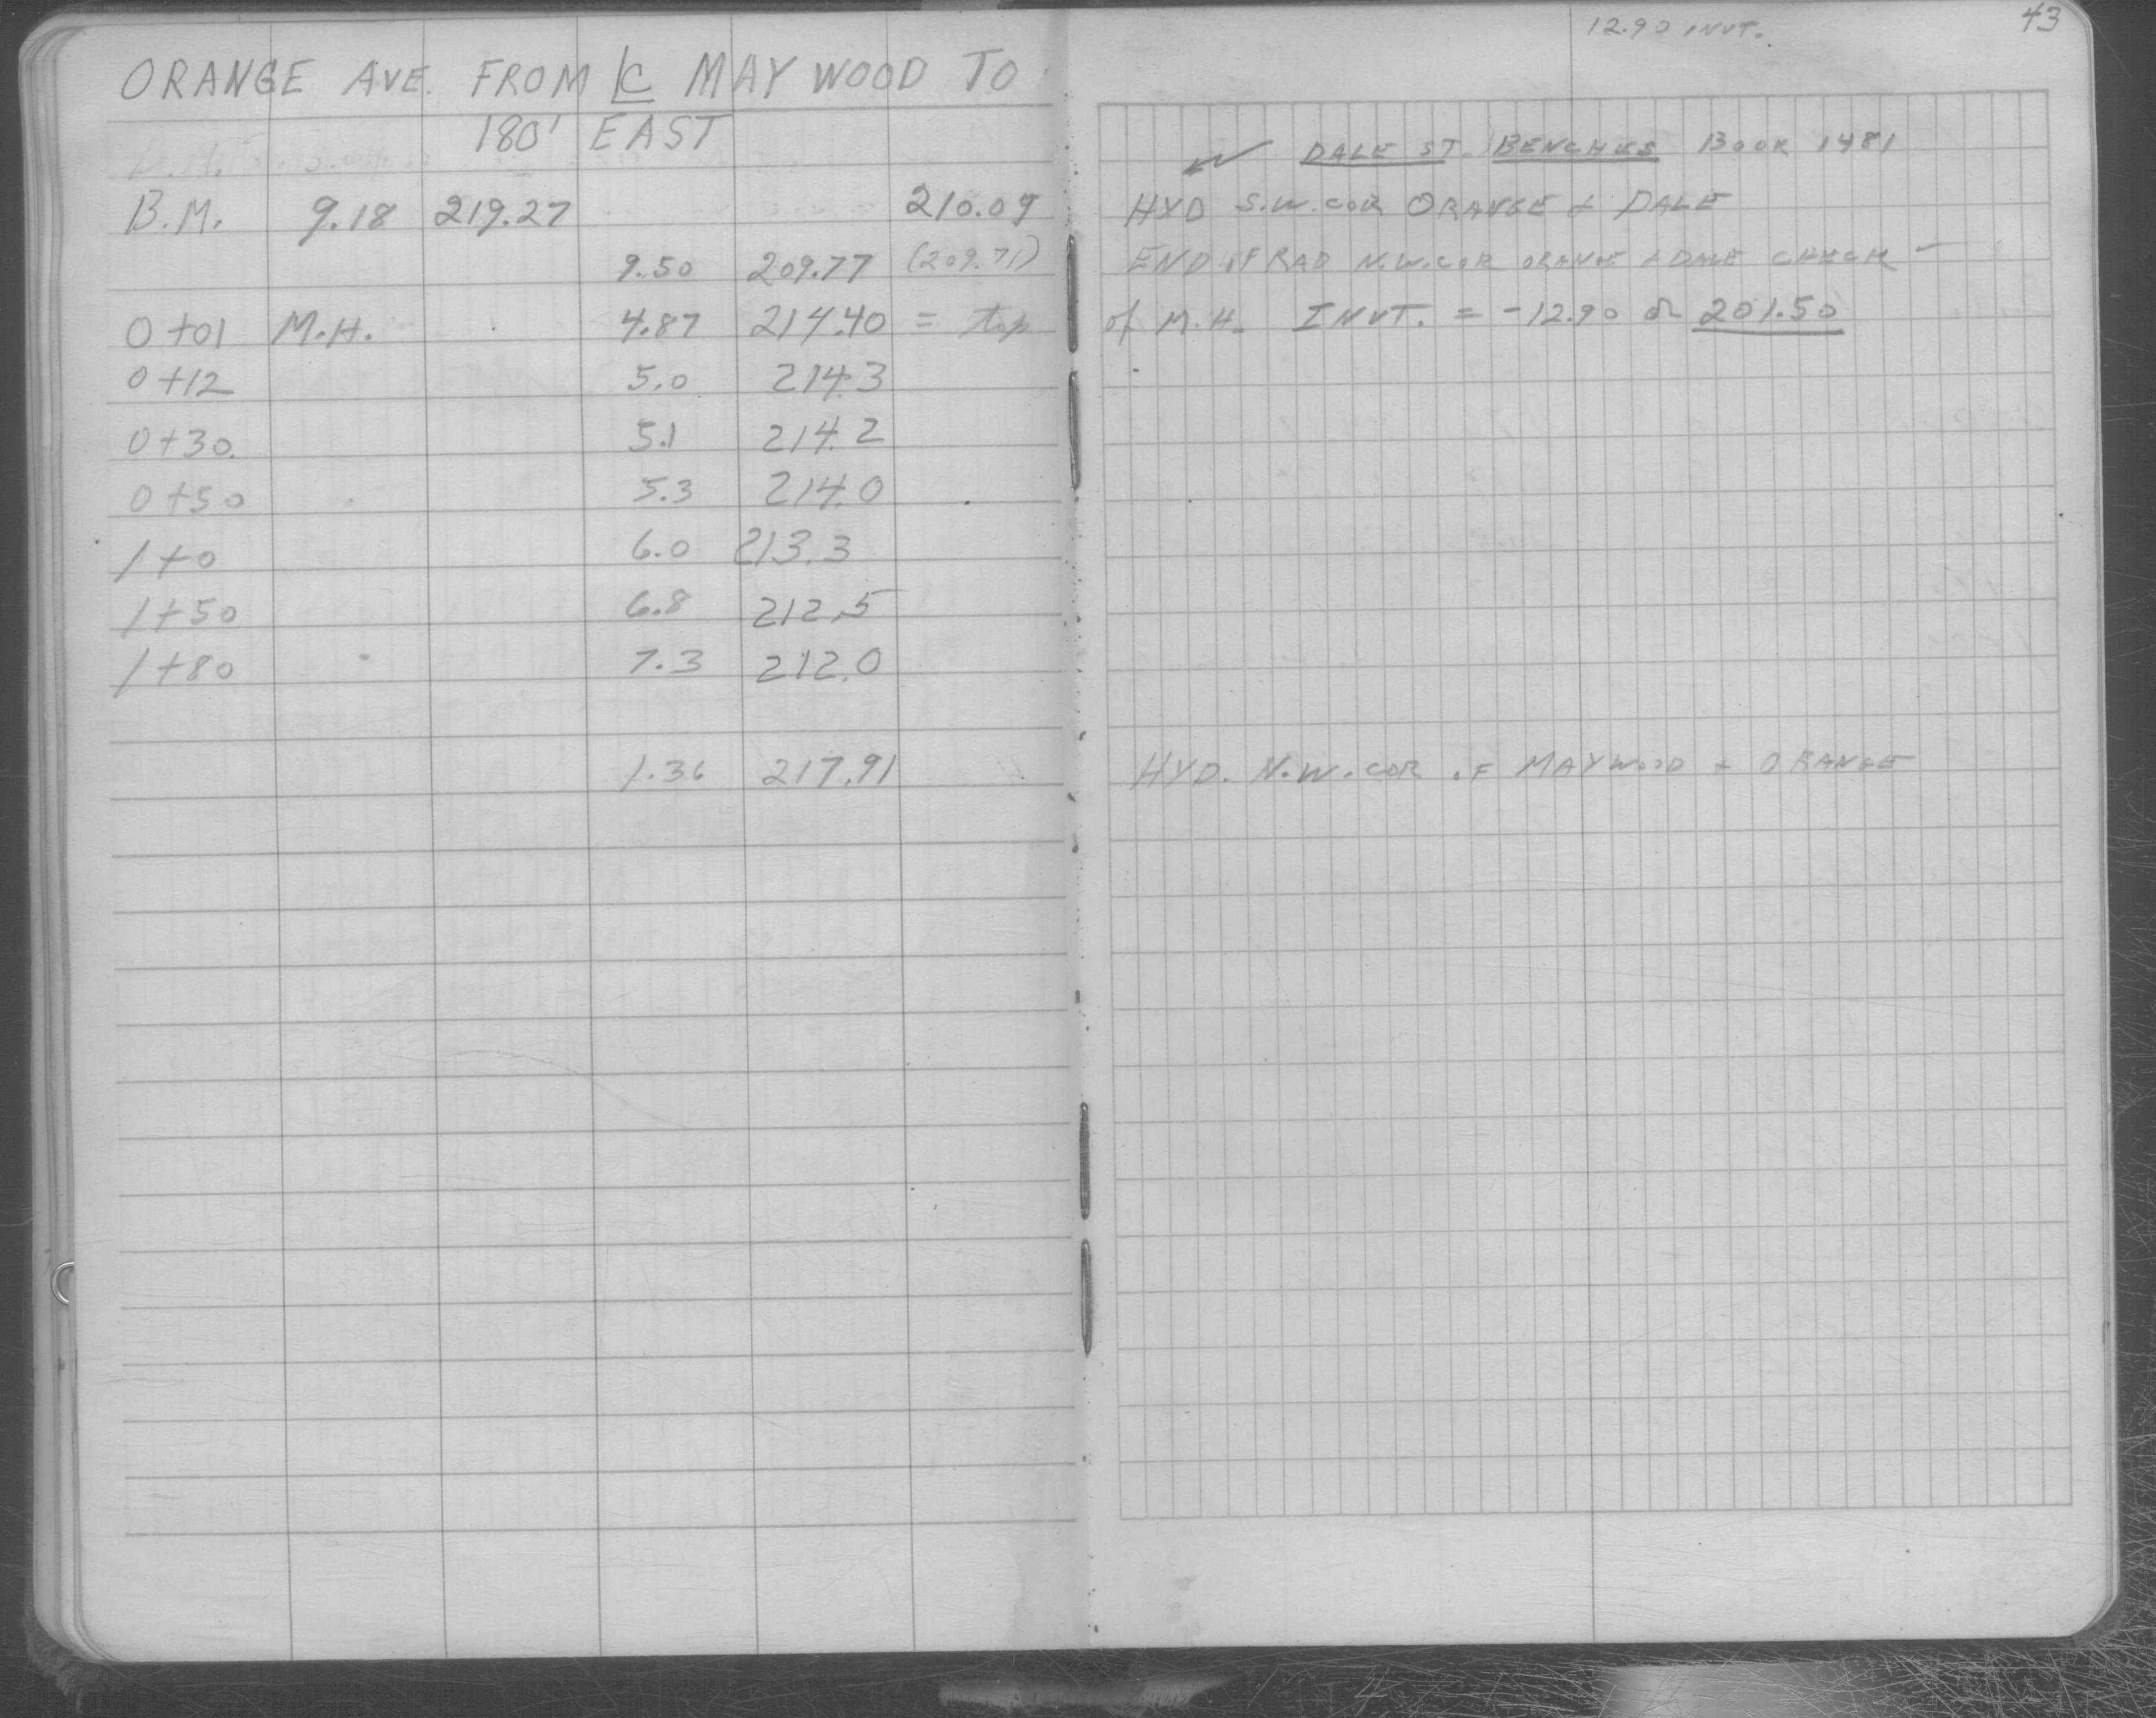 12.90 INVT.
43
ORANGE AVE. FROM ℄ MAYWOOD TO
180' EAST
DALE ST. BENCHES BOOK 1481
B.M. 9.18 219.27 210.09 HYD S.W. COR ORANGE & DALE
9.50 209.77 (209.71) END OF RAD N.W. COR ORANGE & DALE CHECK
0+01 M.H. 4.87 214.40 = top of M.H. INVT. = -12.90 or 201.50
0+12 5.0 214.3
0+30. 5.1 214.2
0+50 5.3 214.0
1+0 6.0 213.3
1+50 6.8 212.5
1+80 7.3 212.0
1.36 217.91 HYD. N.W. COR OF MAYWOOD & ORANGE